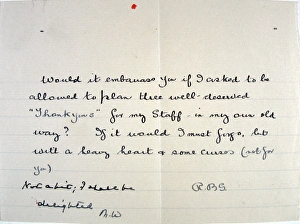 Would it embarrass you if I asked to be
allowed to plan three well-deserved
"Thankyous" for my Staff - in my own old
way? If it would I must forgo, but
with a heavy heart & some curses (not for
you)
Not a bit; I shall be R.B.S.
delighted